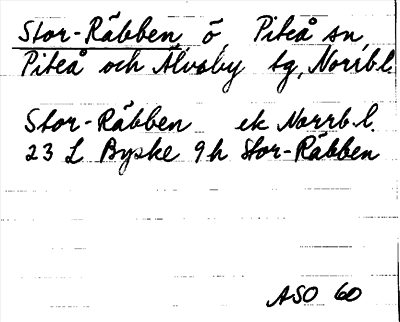 Stor-Räbben ö, Piteå sn
Piteå och Älvsby tg, Norrb.l.
Stor-Räbben ek Norrb.l.
23 L Byske 9h Stor-Räbben
ASO 60